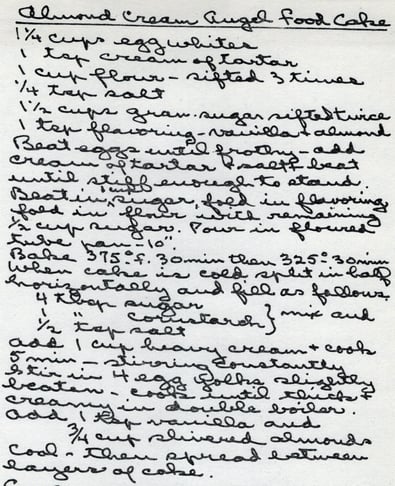 Almond Cream Angel Food Cake
1 1/4 cups egg whites
1 tsp cream of tartar
1 cup flour - sifted 3 times
1/4 tsp salt
1 1/2 cups gran. sugar sifted twice
1 tsp flavoring - vanilla + almond
Beat eggs until frothy - add
cream of tartar + salt - beat
until stiff enough to stand.
Beat in 1 cup sugar, fold in flavoring
fold in flour with remaining
1/2 cup sugar. Pour in floured
tube pan - 10".
Bake 375° f. 30 min then 325° 30 min
When cake is cold, split in half
horizontally and fill as follows.
4 tbsp sugar
1 " cornstarch } mix and
1/2 tsp salt
add 1 cup heavy cream + cook
5 min - stirring constantly
stir in 4 egg yolks slightly
beaten - cook until thick +
creamy in double boiler.
add 1 tsp vanilla and
3/4 cup slivered almonds
Cool - then spread between
layers of cake.